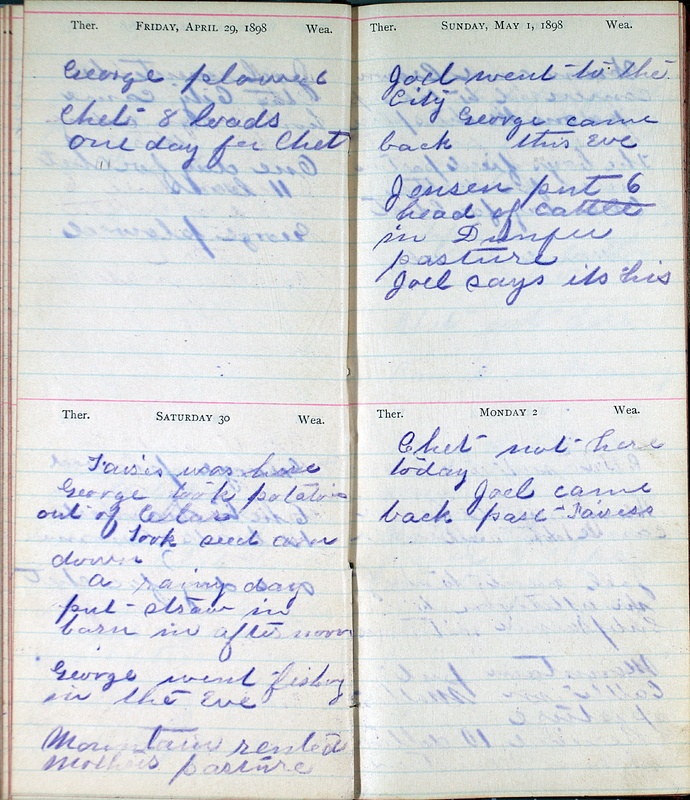 Ther. FRIDAY, APRIL 29, 1898 Wea.
George plowed
Chet 8 loads
one day for Chet
Ther. SATURDAY 30 Wea.
was here
George took potatoes
out of Cellar
Took seed corn
down
a rainy day
put straw in
barn in after noon
George went fishing
in the Eve
Mountain rented
Mothers pasture
Ther. SUNDAY, MAY 1, 1898 Wea.
Joel went to the
City
George came
back this Eve
Jensen put 6
head of cattle
in
pasture
Joel says its his
Ther. MONDAY 2 Wea.
Chet not here
today
Joel came
back